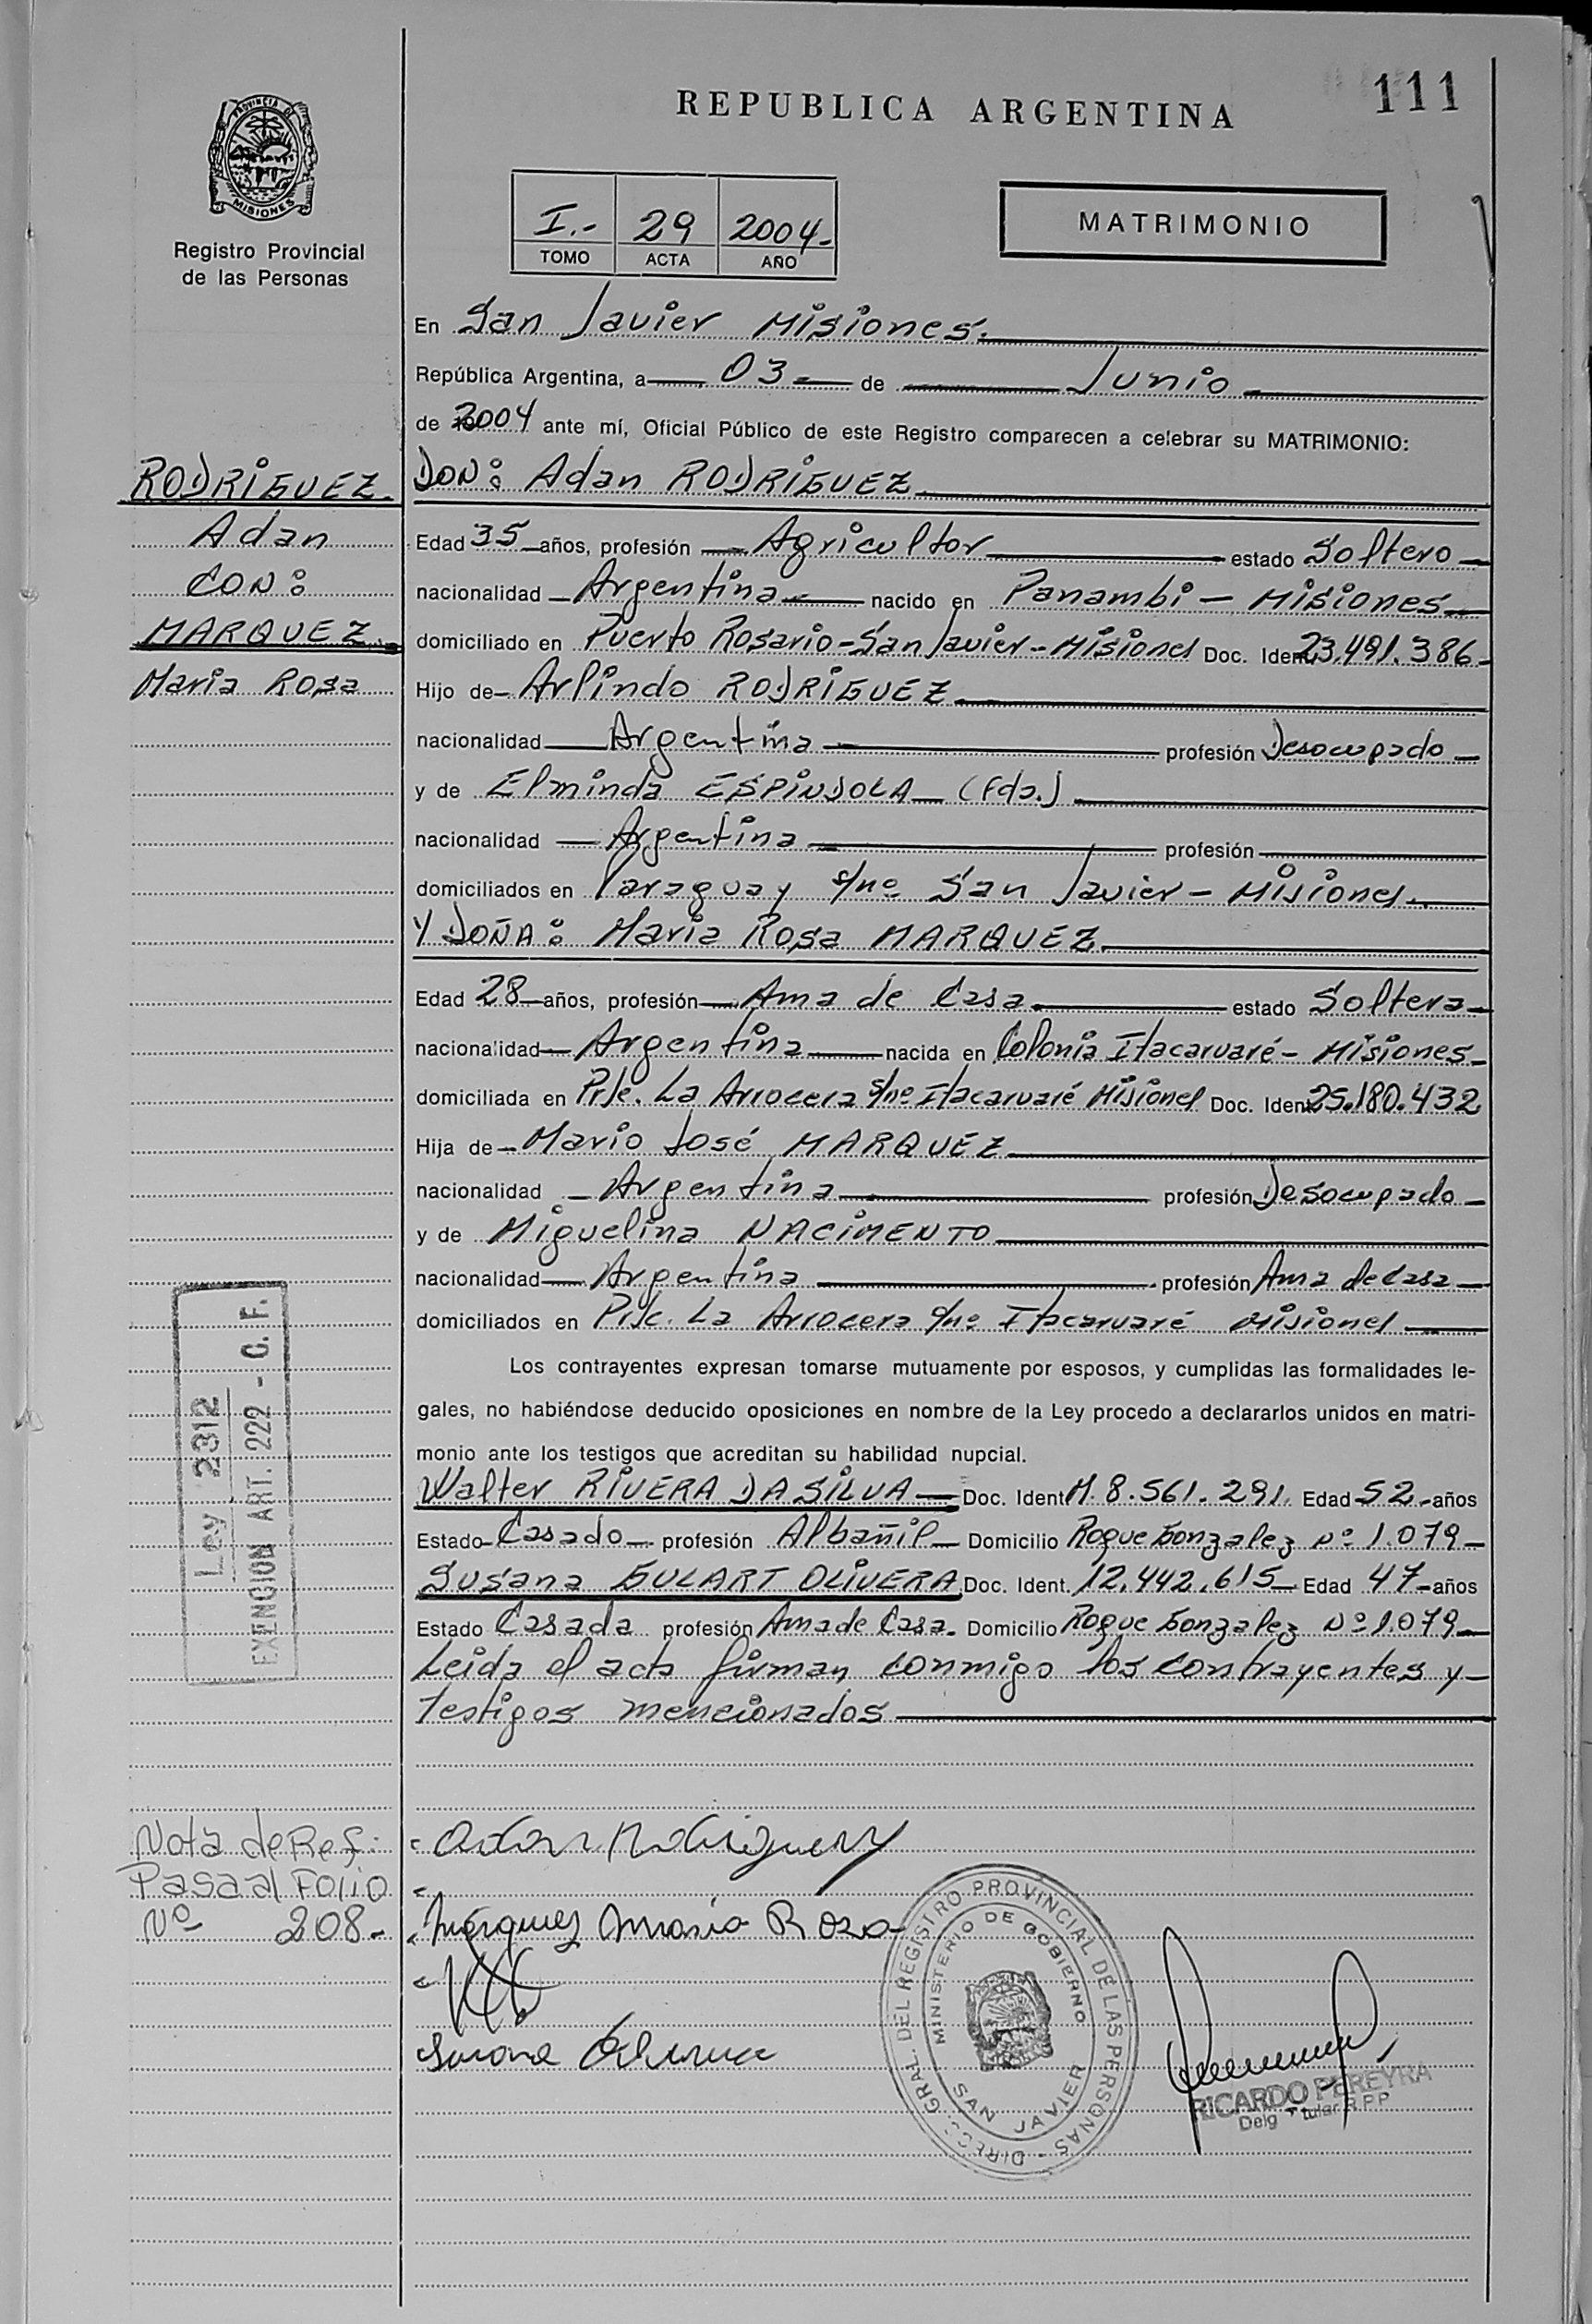 111
REPUBLICA ARGENTINA
PROVINCIA DE
MISIONES
Registro Provincial
de las Personas
I.- 29 2004-
TOMO ACTA AÑO
MATRIMONIO
En San Javier Misiones.
República Argentina, a 03 de Junio
de 2004 ante mí, Oficial Público de este Registro comparecen a celebrar su MATRIMONIO:
RODRIGUEZ.
Adan
CON:
MARQUEZ
Maria Rosa
DON: Adan RODRIGUEZ
Edad 35 años, profesión Agricultor estado Soltero
nacionalidad Argentina nacido en Panambi - Misiones
domiciliado en Puerto Rosario-San Javier-Misiones Doc. Ident. 23.491.386-
Hijo de Arlindo RODRIGUEZ
nacionalidad Argentina profesión Desocupado
y de Elminda ESPINDOLA (Fda.)
nacionalidad Argentina profesión
domiciliados en Paraguay s/nº San Javier - Misiones
Y DOÑA: Maria Rosa MARQUEZ
Edad 28 años, profesión Ama de Casa estado Soltera
nacionalidad Argentina nacida en Colonia Itacaruaré - Misiones
domiciliada en Prje. La Arrocera s/nº Itacaruaré Misiones Doc. Ident. 25.180.432
Hija de Mario José MARQUEZ
nacionalidad Argentina profesión Desocupado
y de Miguelina NACIMENTO
nacionalidad Argentina profesión Ama de Casa
domiciliados en Prje. La Arrocera s/nº Itacaruaré Misiones
Los contrayentes expresan tomarse mutuamente por esposos, y cumplidas las formalidades le-
gales, no habiéndose deducido oposiciones en nombre de la Ley procedo a declararlos unidos en matri-
monio ante los testigos que acreditan su habilidad nupcial.
Walter RIVERA DA SILVA Doc. Ident. M. 8.561.291. Edad 52 años
Estado Casado profesión Albañil Domicilio Roque Gonzalez Nº 1.079
Susana GULART OLIVERA Doc. Ident. 12.442.615 Edad 47 años
Estado Casada profesión Ama de Casa. Domicilio Roque Gonzalez Nº 1.079
Leida el acta firman conmigo los contrayentes y
testigos mencionados
Ley 2312
EXENCION ART. 222 - C. F.
Nota de Ref:
Pasa al Folio
Nº 208-
Adan Rodriguez
Marquez Maria Rosa
Susana Olivera
DIRECC. GRAL. DEL REGISTRO PROVINCIAL DE LAS PERSONAS
MINISTERIO DE GOBIERNO
SAN JAVIER
RICARDO PEREYRA
Delg Titular R P P